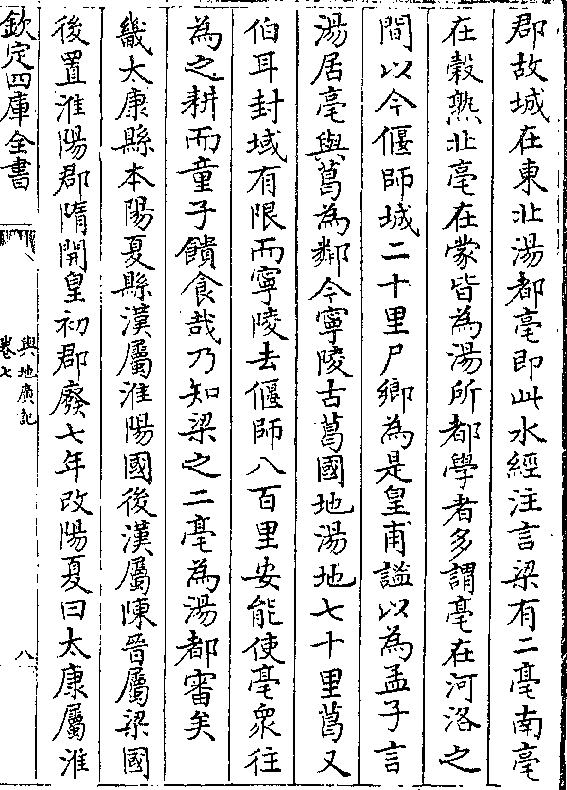 郡故城在東北湯都亳即此水經注言梁有二亳南亳
在穀熟北亳在蒙皆為湯所都學者多謂亳在河洛之
間以今偃師城二十里尸鄉為是皇甫謐以為孟子言
湯居亳與葛為鄰今寧陵古葛國地湯地七十里葛又
伯耳封域有限而寧陵去偃師八百里安能使亳衆往
為之耕而童子饋食哉乃知梁之二亳為湯都審矣
畿太康縣本陽夏縣漢屬淮陽國後漢屬陳晉屬梁國
後置淮陽郡隋開皇初郡廢七年改陽夏曰太康屬淮
欽定四庫全書
輿地廣記
卷七
八